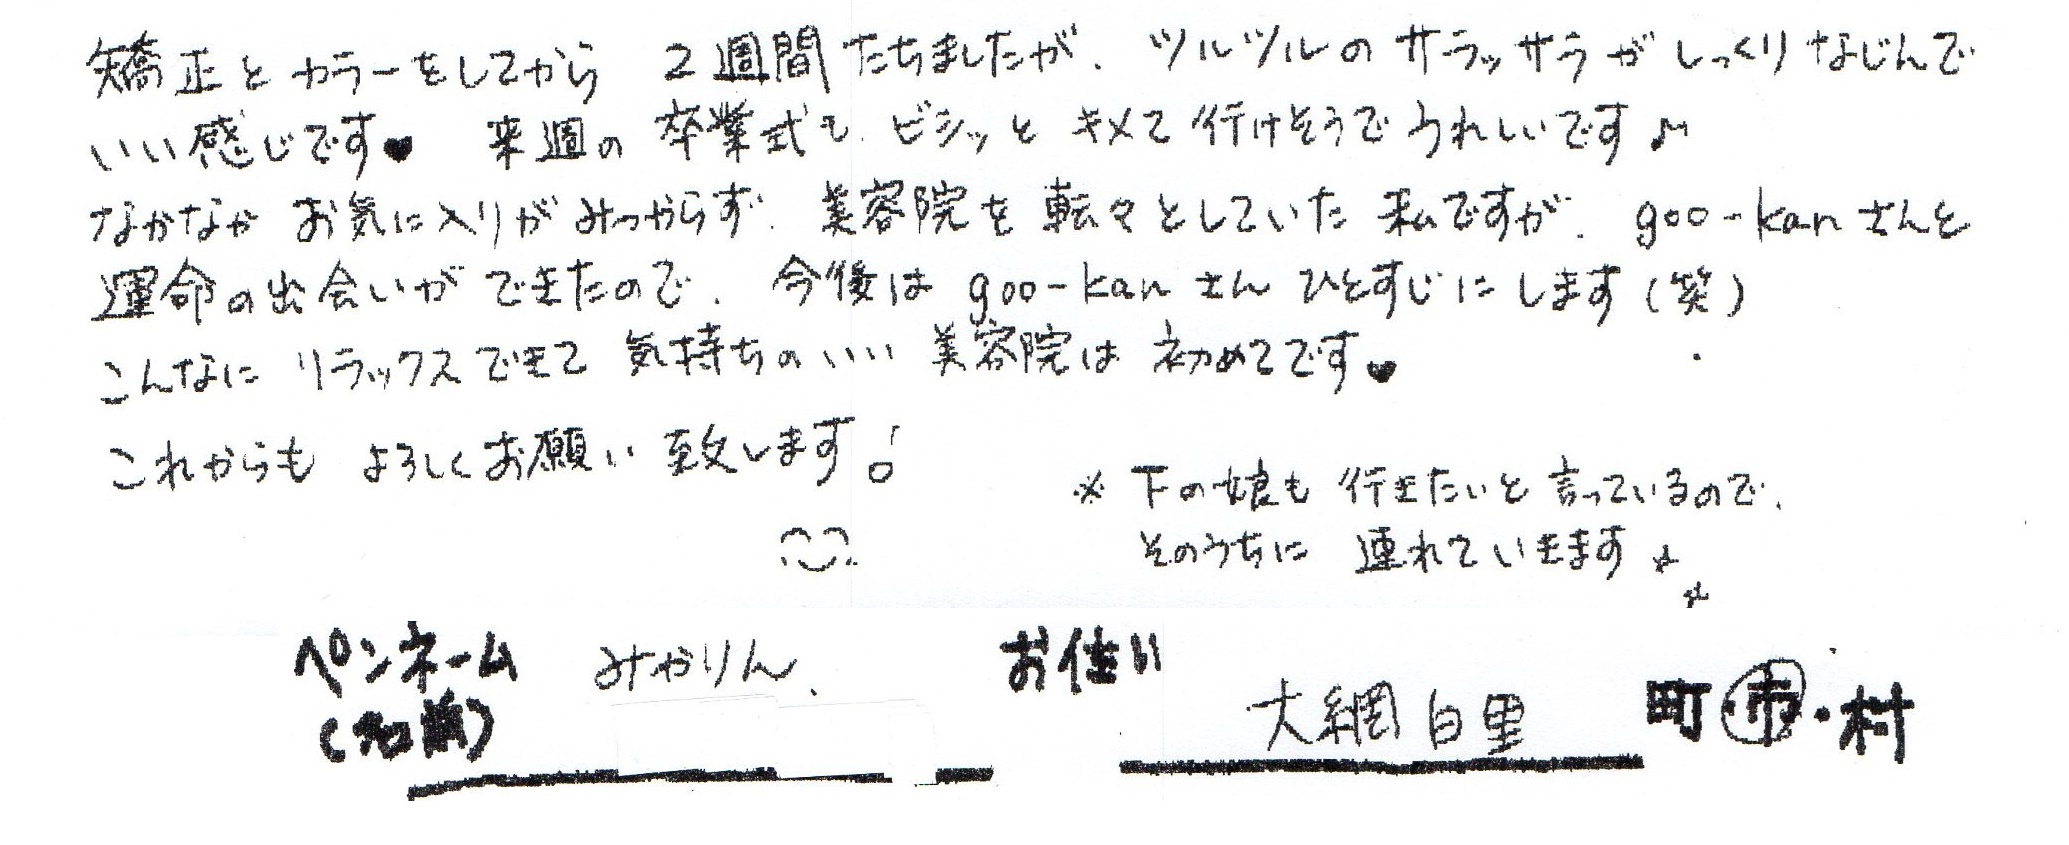 矯正とカラーをしてから 2週間たちましたが、ツルツルのサラッサラがしっくりなじんで
いい感じです♥ 来週の卒業式も、ビシッとキメて行けそうでうれしいです♪
なかなかお気に入りがみつからず、美容院を転々としていた私ですが、goo-kanさんと
運命の出会いができたので、今後はgoo-kanさんひとすじにします(笑)
こんなにリラックスできて気持ちのいい美容院は初めてです♥
これからもよろしくお願い致します!
※下の娘も行きたいと言っているので、
そのうちに連れていきます
ペンネーム みかりん、 お住い
(名前) 大網白里 町・市・村